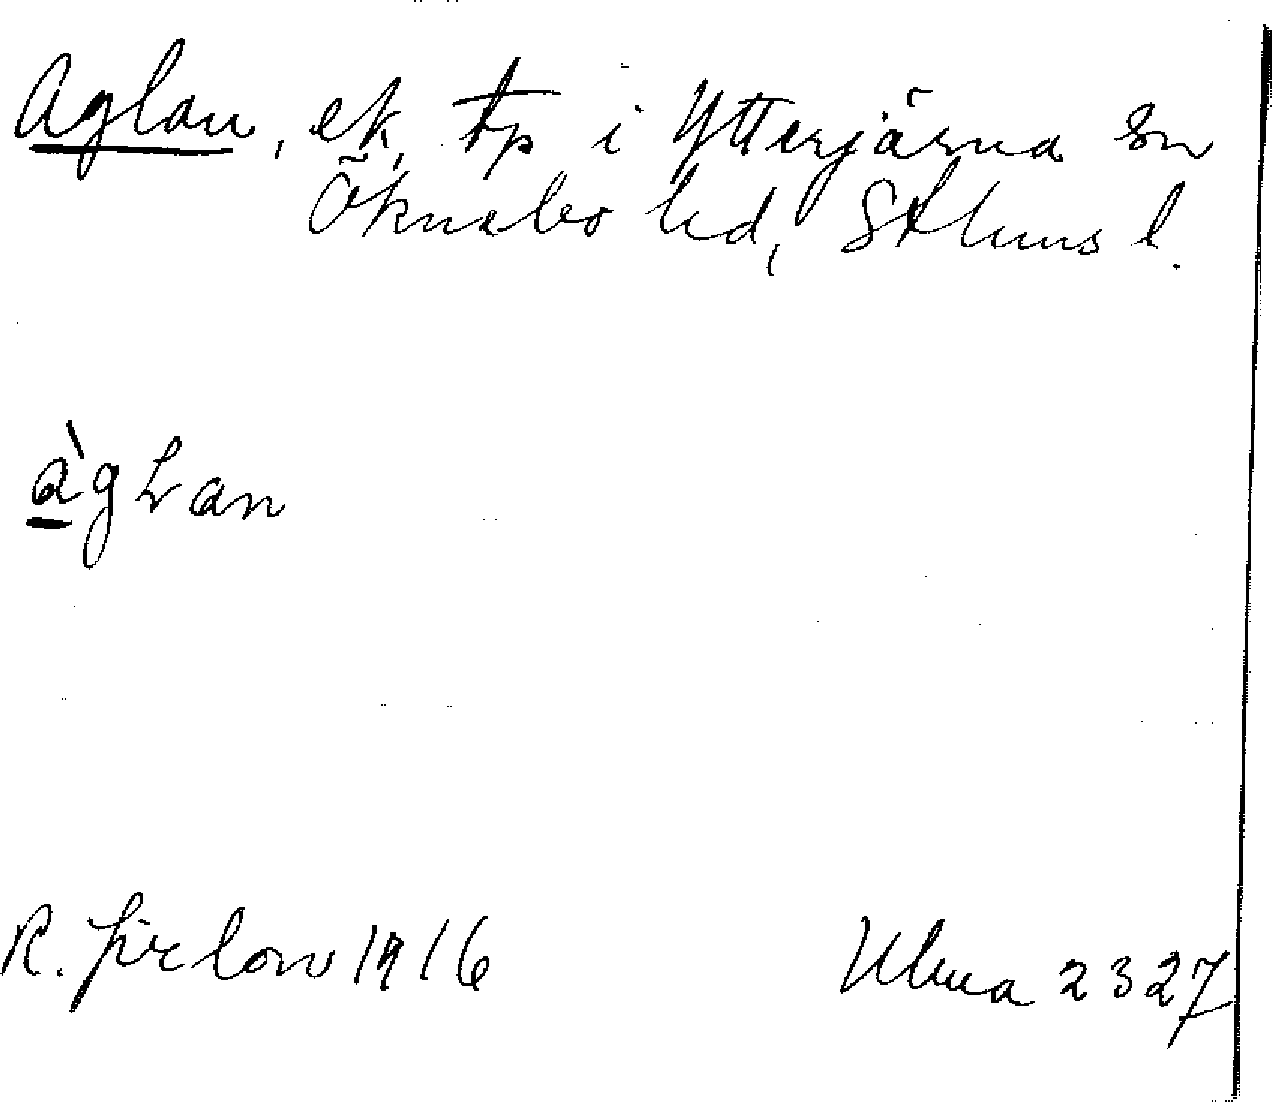 Aglan, ek, tp i Ytterjärna sn
Öknebo hd, Sthlms l.
àgLan
R. Jirlow 1916
Uluma 2327